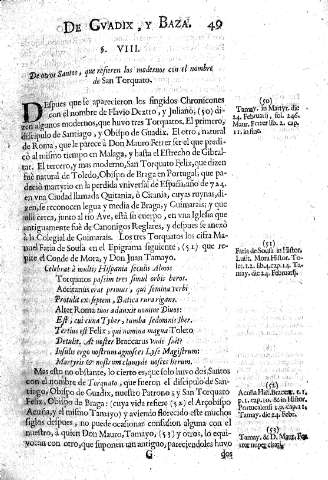 DE GVADIX, Y BAZA. 49
§. VIII.
De otros Santos, que refieren los modernos con el nombre
de San Torquato.
DEspues que se aparecieron los fingidos Chronicones
con el nombre de Flavio Dextro, y Juliano, (50) dizen
algunos modernos, que huvo tres Torquatos. El primero,
discipulo de Santiago, y Obispo de Guadix. El otro, natural
de Roma, que le parece à Don Mauro Ferrer ser el que predicó
al mismo tiempo en Malaga, y hasta el Estrecho de Gibraltar.
El tercero, y mas moderno, San Torquato Felix, que dizen
fuè natural de Toledo, Obispo de Braga en Portugal, que padeciò
martyrio en la perdida vniversal de España, año de 724.
en vna Ciudad llamada Quitania, ò Citania, cuyas ruynas, dizen,
se reconocen legua y media de Braga, y Guimarais; y que
alli cerca, junto al rio Ave, està su cuerpo, en vna Iglesia que
antiguamente fuè de Canonigos Reglares, y despues se anexò
à la Colegial de Guimarais. Los tres Torquatos los cifra Manuel
Faria de Sousa en el Epigrama siguiente, (51) que repite
el Conde de Mora, y Don Juan Tamayo.
Celebrat à multis Hispania secula Alvos
Torquatos passim tres simul orbis heros.
Accitanus erat primus, qui semina verbi
Protulit ex septem, Bætica rura rigans.
Alter Roma tuos adauxit nomine Divos:
Est, cui cuna Tyber, tumba sed
Tertius est Felix, qui nomina magna Toleto
Detulit, Ast noster Braccarus vade fuit
Insuls ergo nostrum agnosces Lysæ Magistrum:
Martyris &
Mas esto no obstante, lo cierto es, que solo huvo dos Santos
con el nombre de Torquato, que fueron el discipulo de Santiago,
Obispo de Guadix, nuestro Patrono; y San Torquato
Felix, Obispo de Braga: (cuya vida refiere (52) el Arçobispo
Acuña, y el mismo Tamayo) y aviendo florecido este muchos
siglos despues, no puede ocasionar confusion alguna con el
nuestro, à quien Don Mauro, Tamayo, (53) y otros, lo equivocan
con otro, que suponen tan antiguo, haviendo
G dos
(50)
Tamay. in Martyr. die
24. Februarii, fol. 246.
Maur. Ferrer lib. 2. cap.
11. in fine.
(51)
Faria de Sousa in Histor.
Lusit. Mora Histor. Toled.
t. 2. lib. 4. cap. 14. Tamay.
die 24. Februarii.
(52)
Acuña Hist. Bracar. t. 1.
p. 1. cap. 10. & in Histor.
Portucalensi
Tamay. die 24. Febr.
(53)
Tamay. & D. Maur. Ferrer